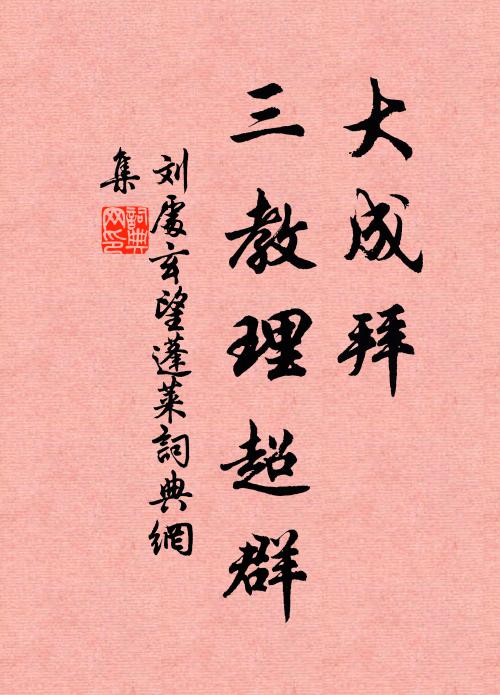 大成拜
三教理超群
刘處玄望蓬莱詞典網
集
詞典网印